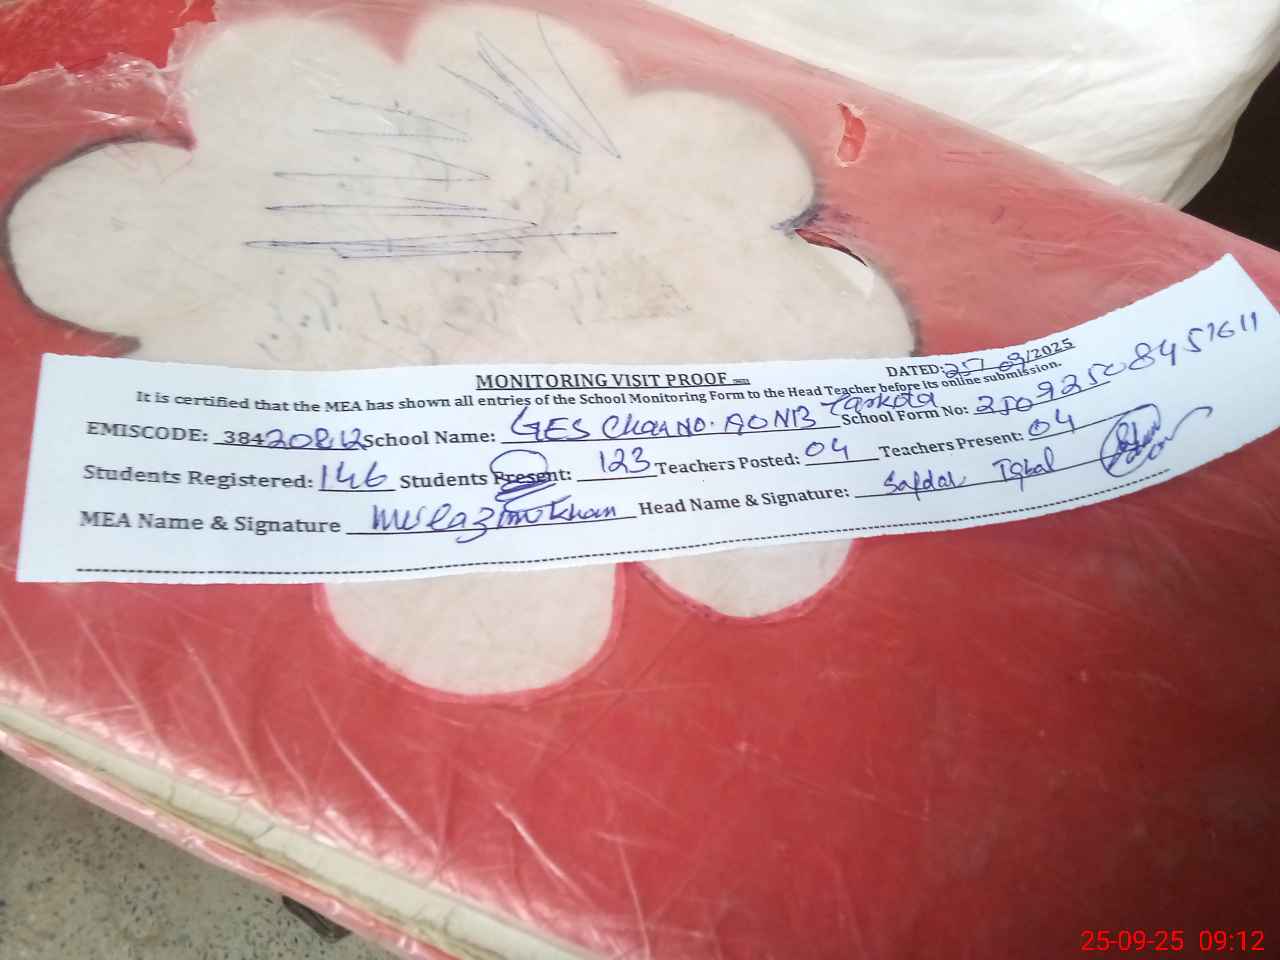 MONITORING VISIT PROOF
DATED: 25/09/2025
It is certified that the MEA has shown all entries of the School Monitoring Form to the Head Teacher before its online submission.
EMISCODE: 384 School Name: GES Chak NO. Tarkota School Form No: 25092508451611
Students Registered: 146 Students Present: 123 Teachers Posted: 04 Teachers Present: 04
MEA Name & Signature Khan Head Name & Signature: Safdar Iqbal
25-09-25 09:12